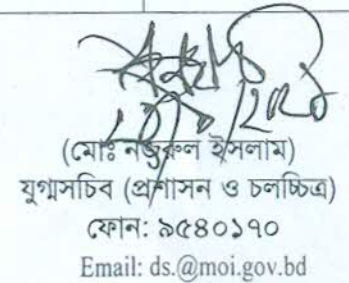 (মোঃ নজরুল ইসলাম)
যুগ্মসচিব (প্রশাসন ও চলচ্চিত্র)
ফোন: ৯৫৪০১৭০
Email: ds.@moi.gov.bd